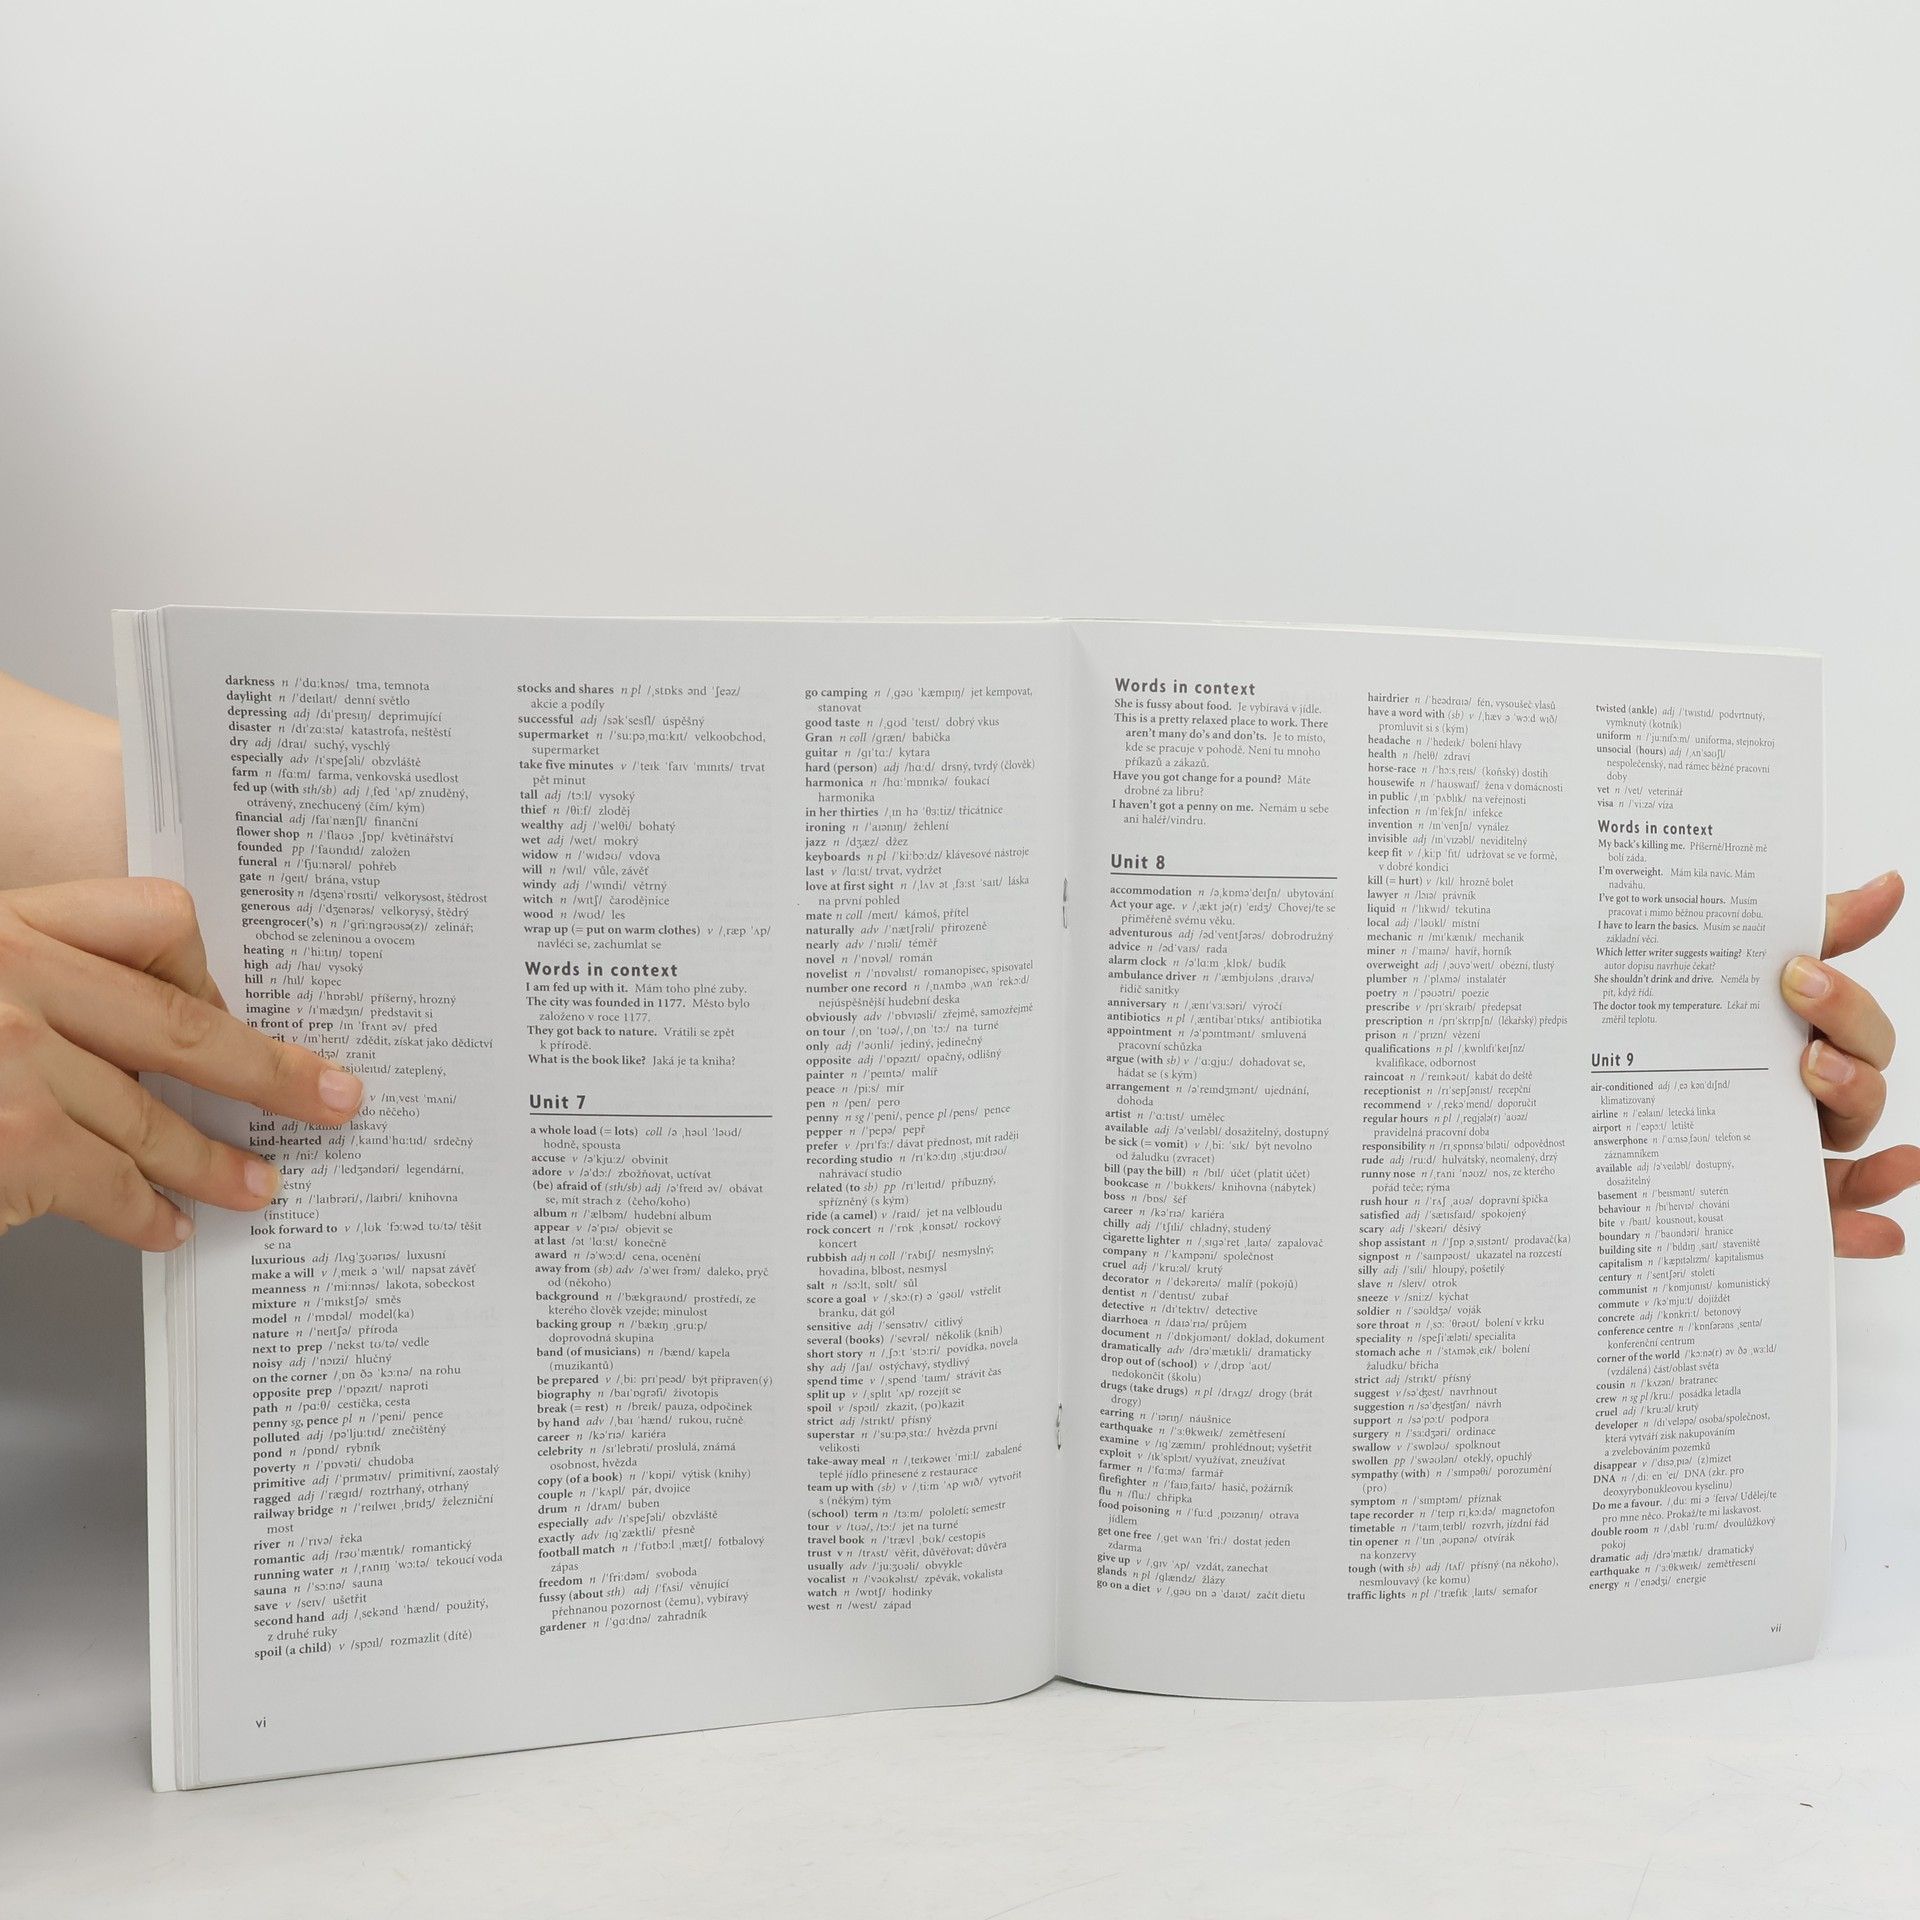 darkness n /ˈdɑːknəs/ tma, temnota
daylight n /ˈdeɪlaɪt/ denní světlo
depressing adj /dɪˈpresɪŋ/ deprimující
disaster n /dɪˈzɑːstə/ katastrofa, neštěstí
dry adj /draɪ/ suchý, vyschlý
especially adv /ɪˈspeʃəli/ obzvláště
farm n /fɑːm/ farma, venkovská usedlost
fed up (with sth/sb) adj /ˌfed ˈʌp/ znuděný,
otrávený, znechucený (čím/ kým)
financial adj /faɪˈnænʃl/ finanční
flower shop n /ˈflaʊə ˌʃɒp/ květinářství
founded pp /ˈfaʊndɪd/ založen
funeral n /ˈfjuːnərəl/ pohřeb
gate n /geɪt/ brána, vstup
generosity n /dʒenəˈrɒsɪti/ velkorysost, štědrost
generous adj /ˈdʒenərəs/ velkorysý, štědrý
greengrocer('s) n /ˈgriːngrəʊsə(z)/ zelinář;
obchod se zeleninou a ovocem
heating n /ˈhiːtɪŋ/ topení
high adj /haɪ/ vysoký
hill n /hɪl/ kopec
horrible adj /ˈhɒrəbl/ příšerný, hrozný
imagine v /ɪˈmædʒɪn/ představit si
in front of prep /ɪn ˈfrʌnt əv/ před
v /ɪnˈherɪt/ zdědit, získat jako dědictví
zranit
zateplený,
v /ɪnˌvest ˈmʌni/
(do něčeho)
kind adj /kaɪnd/ laskavý
kind-hearted adj /ˌkaɪndˈhɑːtɪd/ srdečný
n /niː/ koleno
adj /ˈledʒəndəri/ legendární,
n /ˈlaɪbrəri/, /laɪbri/ knihovna
(instituce)
look forward to v /ˌlʊk ˈfɔːwəd tʊ/tə/ těšit
se na
luxurious adj /lʌgˈʒʊəriəs/ luxusní
make a will v /ˌmeɪk ə ˈwɪl/ napsat závěť
meanness n /ˈmiːnnəs/ lakota, sobeckost
mixture n /ˈmɪkstʃə/ směs
model n /ˈmɒdəl/ model(ka)
nature n /ˈneɪtʃə/ příroda
next to prep /ˈnekst tʊ/tə/ vedle
noisy adj /ˈnɔɪzi/ hlučný
on the corner /ˌɒn ðə ˈkɔːnə/ na rohu
opposite prep /ˈɒpəzɪt/ naproti
path n /pɑːθ/ cestička, cesta
penny sg, pence pl n /ˈpeni/ pence
polluted adj /pəˈljuːtɪd/ znečištěný
pond n /pɒnd/ rybník
poverty n /ˈpɒvəti/ chudoba
primitive adj /ˈprɪmətɪv/ primitivní, zaostalý
ragged adj /ˈrægɪd/ roztrhaný, otrhaný
railway bridge n /ˈreɪlweɪ ˌbrɪdʒ/ železniční
most
river n /ˈrɪvə/ řeka
romantic adj /rəʊˈmæntɪk/ romantický
running water n /ˌrʌnɪŋ ˈwɔːtə/ tekoucí voda
sauna n /ˈsɔːnə/ sauna
save v /seɪv/ ušetřit
second hand adj /ˌsekənd ˈhænd/ použitý,
z druhé ruky
spoil (a child) v /spɔɪl/ rozmazlit (dítě)
vi
stocks and shares n pl /ˌstɒks ənd ˈʃeəz/
akcie a podíly
successful adj /səkˈsesfl/ úspěšný
supermarket n /ˈsuːpəˌmɑːkɪt/ velkoobchod,
supermarket
take five minutes v /ˈteɪk ˈfaɪv ˈmɪnɪts/ trvat
pět minut
tall adj /tɔːl/ vysoký
thief n /θiːf/ zloděj
wealthy adj /ˈwelθi/ bohatý
wet adj /wet/ mokrý
widow n /ˈwɪdəʊ/ vdova
will n /wɪl/ vůle, závěť
windy adj /ˈwɪndi/ větrný
witch n /wɪtʃ/ čarodějnice
wood n /wʊd/ les
wrap up (= put on warm clothes) v /ˌræp ˈʌp/
navléci se, zachumlat se
Words in context
I am fed up with it. Mám toho plné zuby.
The city was founded in 1177. Město bylo
založeno v roce 1177.
They got back to nature. Vrátili se zpět
k přírodě.
What is the book like? Jaká je ta kniha?
Unit 7
a whole load (= lots) coll /ə ˌhəʊl ˈləʊd/
hodně, spousta
accuse v /əˈkjuːz/ obvinit
adore v /əˈdɔː/ zbožňovat, uctívat
(be) afraid of (sth/sb) adj /əˈfreɪd əv/ obávat
se, mít strach z (čeho/koho)
album n /ˈælbəm/ hudební album
appear v /əˈpɪə/ objevit se
at last /ət ˈlɑːst/ konečně
award n /əˈwɔːd/ cena, ocenění
away from (sb) adv /əˈweɪ frəm/ daleko, pryč
od (někoho)
background n /ˈbækgraʊnd/ prostředí, ze
kterého člověk vzejde; minulost
backing group n /ˈbækɪŋ ˌgruːp/
doprovodná skupina
band (of musicians) n /bænd/ kapela
(muzikantů)
be prepared v /ˌbiː prɪˈpeəd/ být připraven(ý)
biography n /baɪˈɒgrəfi/ životopis
break (= rest) n /breɪk/ pauza, odpočinek
by hand adv /ˌbaɪ ˈhænd/ rukou, ručně
career n /kəˈrɪə/ kariéra
celebrity n /sɪˈlebrəti/ proslulá, známá
osobnost, hvězda
copy (of a book) n /ˈkɒpi/ výtisk (knihy)
couple n /ˈkʌpl/ pár, dvojice
drum n /drʌm/ buben
especially adv /ɪˈspeʃəli/ obzvláště
exactly adv /ɪgˈzæktli/ přesně
football match n /ˈfʊtbɔːl ˌmætʃ/ fotbalový
zápas
freedom n /ˈfriːdəm/ svoboda
fussy (about sth) adj /ˈfʌsi/ věnující
přehnanou pozornost (čemu), vybíravý
gardener n /ˈgɑːdnə/ zahradník
go camping n /ˌgəʊ ˈkæmpɪŋ/ jet kempovat,
stanovat
good taste n /ˌgʊd ˈteɪst/ dobrý vkus
Gran n coll /græn/ babička
guitar n /gɪˈtɑː/ kytara
hard (person) adj /hɑːd/ drsný, tvrdý (člověk)
harmonica n /hɑːˈmɒnɪkə/ foukací
harmonika
in her thirties /ˌɪn hə ˈθɜːtiz/ třicátnice
ironing n /ˈaɪənɪŋ/ žehlení
jazz n /dʒæz/ džez
keyboards n pl /ˈkiːbɔːdz/ klávesové nástroje
last v /lɑːst/ trvat, vydržet
love at first sight n /ˌlʌv ət ˌfɜːst ˈsaɪt/ láska
na první pohled
mate n coll /meɪt/ kámoš, přítel
naturally adv /ˈnætʃrəli/ přirozeně
nearly adv /ˈnɪəli/ téměř
novel n /ˈnɒvəl/ román
novelist n /ˈnɒvəlɪst/ romanopisec, spisovatel
number one record n /ˌnʌmbə ˌwʌn ˈrekɔːd/
nejúspěšnější hudební deska
obviously adv /ˈɒbvɪəsli/ zřejmě, samozřejmě
on tour /ˌɒn ˈtʊə/, /ˌɒn ˈtɔː/ na turné
only adj /ˈəʊnli/ jediný, jedinečný
opposite adj /ˈɒpəzɪt/ opačný, odlišný
painter n /ˈpeɪntə/ malíř
peace n /piːs/ mír
pen n /pen/ pero
penny n sg /ˈpeni/, pence pl /pens/ pence
pepper n /ˈpepə/ pepř
prefer v /prɪˈfɜː/ dávat přednost, mít raději
recording studio n /rɪˈkɔːdɪŋ ˌstjuːdɪəʊ/
nahrávací studio
related (to sb) pp /rɪˈleɪtɪd/ příbuzný,
spřízněný (s kým)
ride (a camel) v /raɪd/ jet na velbloudu
rock concert n /ˈrɒk ˌkɒnsət/ rockový
koncert
rubbish adj n coll /ˈrʌbɪʃ/ nesmyslný;
hovadina, blbost, nesmysl
salt n /sɔːlt, sɒlt/ sůl
score a goal v /ˌskɔː(r) ə ˈgəʊl/ vstřelit
branku, dát gól
sensitive adj /ˈsensətɪv/ citlivý
several (books) /ˈsevrəl/ několik (knih)
short story n /ˌʃɔːt ˈstɔːri/ povídka, novela
shy adj /ʃaɪ/ ostýchavý, stydlivý
spend time v /ˌspend ˈtaɪm/ strávit čas
split up v /ˌsplɪt ˈʌp/ rozejít se
spoil v /spɔɪl/ zkazit, (po)kazit
strict adj /strɪkt/ přísný
superstar n /ˈsuːpəˌstɑː/ hvězda první
velikosti
take-away meal n /ˌteɪkəweɪ ˈmiːl/ zabalené
teplé jídlo přinesené z restaurace
team up with (sb) v /ˌtiːm ˈʌp wɪð/ vytvořit
s (někým) tým
(school) term n /tɜːm/ pololetí; semestr
tour v /tʊə/, /tɔː/ jet na turné
travel book n /ˈtrævl ˌbʊk/ cestopis
trust v n /trʌst/ věřit, důvěřovat; důvěra
usually adv /ˈjuːʒʊəli/ obvykle
vocalist n /ˈvəʊkəlɪst/ zpěvák, vokalista
watch n /wɒtʃ/ hodinky
west n /west/ západ
Words in context
She is fussy about food. Je vybíravá v jídle.
This is a pretty relaxed place to work. There
aren't many do's and don'ts. Je to místo,
kde se pracuje v pohodě. Není tu mnoho
příkazů a zákazů.
Have you got change for a pound? Máte
drobné za libru?
I haven't got a penny on me. Nemám u sebe
ani haléř/vindru.
Unit 8
accommodation n /əˌkɒməˈdeɪʃn/ ubytování
Act your age. v /ˌækt jə(r) ˈeɪdʒ/ Chovej/te se
přiměřeně svému věku.
adventurous adj /ədˈventʃərəs/ dobrodružný
advice n /ədˈvaɪs/ rada
alarm clock n /əˈlɑːm ˌklɒk/ budík
ambulance driver n /ˈæmbjələns ˌdraɪvə/
řidič sanitky
anniversary n /ˌænɪˈvɜːsəri/ výročí
antibiotics n pl /ˌæntibaɪˈɒtɪks/ antibiotika
appointment n /əˈpɔɪntmənt/ smluvená
pracovní schůzka
argue (with sb) v /ˈɑːgjuː/ dohadovat se,
hádat se (s kým)
arrangement n /əˈreɪndʒmənt/ ujednání,
dohoda
artist n /ˈɑːtɪst/ umělec
available adj /əˈveɪləbl/ dosažitelný, dostupný
be sick (= vomit) v /ˌbiː ˈsɪk/ být nevolno
od žaludku (zvracet)
bill (pay the bill) n /bɪl/ účet (platit účet)
bookcase n /ˈbʊkkeɪs/ knihovna (nábytek)
boss n /bɒs/ šéf
career n /kəˈrɪə/ kariéra
chilly adj /ˈtʃɪli/ chladný, studený
cigarette lighter n /ˌsɪgəˈret ˌlaɪtə/ zapalovač
company n /ˈkʌmpəni/ společnost
cruel adj /ˈkruːəl/ krutý
decorator n /ˈdekəreɪtə/ malíř (pokojů)
dentist n /ˈdentɪst/ zubař
detective n /dɪˈtektɪv/ detective
diarrhoea n /daɪəˈrɪə/ průjem
document n /ˈdɒkjəmənt/ doklad, dokument
dramatically adv /drəˈmætɪkli/ dramaticky
drop out of (school) v /ˌdrɒp ˈaʊt/
nedokončit (školu)
drugs (take drugs) n pl /drʌgz/ drogy (brát
drogy)
earring n /ˈɪərɪŋ/ náušnice
earthquake n /ˈɜːθkweɪk/ zemětřesení
examine v /ɪgˈzæmɪn/ prohlédnout; vyšetřit
exploit v /ɪkˈsplɔɪt/ využívat, zneužívat
farmer n /ˈfɑːmə/ farmář
firefighter n /ˈfaɪəˌfaɪtə/ hasič, požárník
flu n /fluː/ chřipka
food poisoning n /ˈfuːd ˌpɔɪzənɪŋ/ otrava
jídlem
get one free /ˌget wʌn ˈfriː/ dostat jeden
zdarma
give up v /ˌgɪv ˈʌp/ vzdát, zanechat
glands n pl /glændz/ žlázy
go on a diet v /ˌgəʊ ɒn ə ˈdaɪət/ začít dietu
hairdrier n /ˈheədraɪə/ fén, vysoušeč vlasů
have a word with (sb) v /ˌhæv ə ˈwɜːd wɪð/
promluvit si s (kým)
headache n /ˈhedeɪk/ bolení hlavy
health n /helθ/ zdraví
horse-race n /ˈhɔːsˌreɪs/ (koňský) dostih
housewife n /ˈhaʊswaɪf/ žena v domácnosti
in public /ˌɪn ˈpʌblɪk/ na veřejnosti
infection n /ɪnˈfekʃn/ infekce
invention n /ɪnˈvenʃn/ vynález
invisible adj /ɪnˈvɪzəbl/ neviditelný
keep fit v /ˌkiːp ˈfɪt/ udržovat se ve formě,
v dobré kondici
kill (= hurt) v /kɪl/ hrozně bolet
lawyer n /lɔɪə/ právník
liquid n /ˈlɪkwɪd/ tekutina
local adj /ˈləʊkl/ místní
mechanic n /mɪˈkænɪk/ mechanik
miner n /ˈmaɪnə/ havíř, horník
overweight adj /ˌəʊvəˈweɪt/ obézní, tlustý
plumber n /ˈplʌmə/ instalatér
poetry n /ˈpəʊətri/ poezie
prescribe v /prɪˈskraɪb/ předepsat
prescription n /prɪˈskrɪpʃn/ (lékařský) předpis
prison n /ˈprɪzn/ vězení
qualifications n pl /ˌkwɒlɪfɪˈkeɪʃnz/
kvalifikace, odbornost
raincoat n /ˈreɪnkəʊt/ kabát do deště
receptionist n /rɪˈsepʃənɪst/ recepční
recommend v /ˌrekəˈmend/ doporučit
regular hours n pl /ˌregjələ(r) ˈaʊəz/
pravidelná pracovní doba
responsibility n /rɪˌspɒnsəˈbɪləti/ odpovědnost
rude adj /ruːd/ hulvátský, neomalený, drzý
runny nose n /ˌrʌni ˈnəʊz/ nos, ze kterého
pořád teče; rýma
rush hour n /ˈrʌʃ ˌaʊə/ dopravní špička
satisfied adj /ˈsætɪsfaɪd/ spokojený
scary adj /ˈskeəri/ děsivý
shop assistant n /ˈʃɒp əˌsɪstənt/ prodavač(ka)
signpost n /ˈsaɪnpəʊst/ ukazatel na rozcestí
silly adj /ˈsɪli/ hloupý, pošetilý
slave n /sleɪv/ otrok
sneeze v /sniːz/ kýchat
soldier n /ˈsəʊldʒə/ voják
sore throat n /ˌsɔː ˈθrəʊt/ bolení v krku
speciality n /speʃiˈæləti/ specialita
stomach ache n /ˈstʌməkˌeɪk/ bolení
žaludku/ břicha
strict adj /strɪkt/ přísný
suggest v /səˈdʒest/ navrhnout
suggestion n /səˈdʒestʃən/ návrh
support n /səˈpɔːt/ podpora
surgery n /ˈsɜːdʒəri/ ordinace
swallow v /ˈswɒləʊ/ spolknout
swollen pp /ˈswəʊlən/ oteklý, opuchlý
sympathy (with) n /ˈsɪmpəθi/ porozumění
(pro)
symptom n /ˈsɪmptəm/ příznak
tape recorder n /ˈteɪp rɪˌkɔːdə/ magnetofon
timetable n /ˈtaɪmˌteɪbl/ rozvrh, jízdní řád
tin opener n /ˈtɪn ˌəʊpənə/ otvírák
na konzervy
tough (with sb) adj /tʌf/ přísný (na někoho),
nesmlouvavý (ke komu)
traffic lights n pl /ˈtræfɪk ˌlaɪts/ semafor
twisted (ankle) adj /ˈtwɪstɪd/ podvrtnutý,
vymknutý (kotník)
uniform n /ˈjuːnɪfɔːm/ uniforma, stejnokroj
unsocial (hours) adj /ˌʌnˈsəʊʃl/
nespolečenský, nad rámec běžné pracovní
doby
vet n /vet/ veterinář
visa n /ˈviːzə/ víza
Words in context
My back's killing me. Příšerně/Hrozně mě
bolí záda.
I'm overweight. Mám kila navíc. Mám
nadváhu.
I've got to work unsocial hours. Musím
pracovat i mimo běžnou pracovní dobu.
I have to learn the basics. Musím se naučit
základní věci.
Which letter writer suggests waiting? Který
autor dopisu navrhuje čekat?
She shouldn't drink and drive. Neměla by
pít, když řídí.
The doctor took my temperature. Lékař mi
změřil teplotu.
Unit 9
air-conditioned adj /ˌeə kənˈdɪʃnd/
klimatizovaný
airline n /ˈeəlaɪn/ letecká linka
airport n /ˈeəpɔːt/ letiště
answerphone n /ˈɑːnsəˌfəʊn/ telefon se
záznamníkem
available adj /əˈveɪləbl/ dostupný,
dosažitelný
basement n /ˈbeɪsmənt/ suterén
behaviour n /bɪˈheɪvɪə/ chování
bite v /baɪt/ kousnout, kousat
boundary n /ˈbaʊndəri/ hranice
building site n /ˈbɪldɪŋ ˌsaɪt/ staveniště
capitalism n /ˈkæpɪtəlɪzm/ kapitalismus
century n /ˈsentʃəri/ století
communist n /ˈkɒmjənɪst/ komunistický
commute v /kəˈmjuːt/ dojíždět
concrete adj /ˈkɒnkriːt/ betonový
conference centre n /ˈkɒnfərəns ˌsentə/
konferenční centrum
corner of the world /ˈkɔːnə(r) əv ðə ˌwɜːld/
(vzdálená) část/oblast světa
cousin n /ˈkʌzən/ bratranec
crew n sg pl /kruː/ posádka letadla
cruel adj /ˈkruːəl/ krutý
developer n /dɪˈveləpə/ osoba/společnost,
která vytváří zisk nakupováním
a zvelebováním pozemků
disappear v /ˈdɪsəˌpɪə/ (z)mizet
DNA n /ˌdiː en ˈeɪ/ DNA (zkr. pro
deoxyrybonukleovou kyselinu)
Do me a favour. /ˌduː mi ə ˈfeɪvə/ Udělej/te
pro mne něco. Prokaž/te mi laskavost.
double room n /ˌdʌbl ˈruːm/ dvoulůžkový
pokoj
dramatic adj /drəˈmætɪk/ dramatický
earthquake n /ˈɜːθkweɪk/ zemětřesení
energy n /ˈenədʒi/ energie
vii